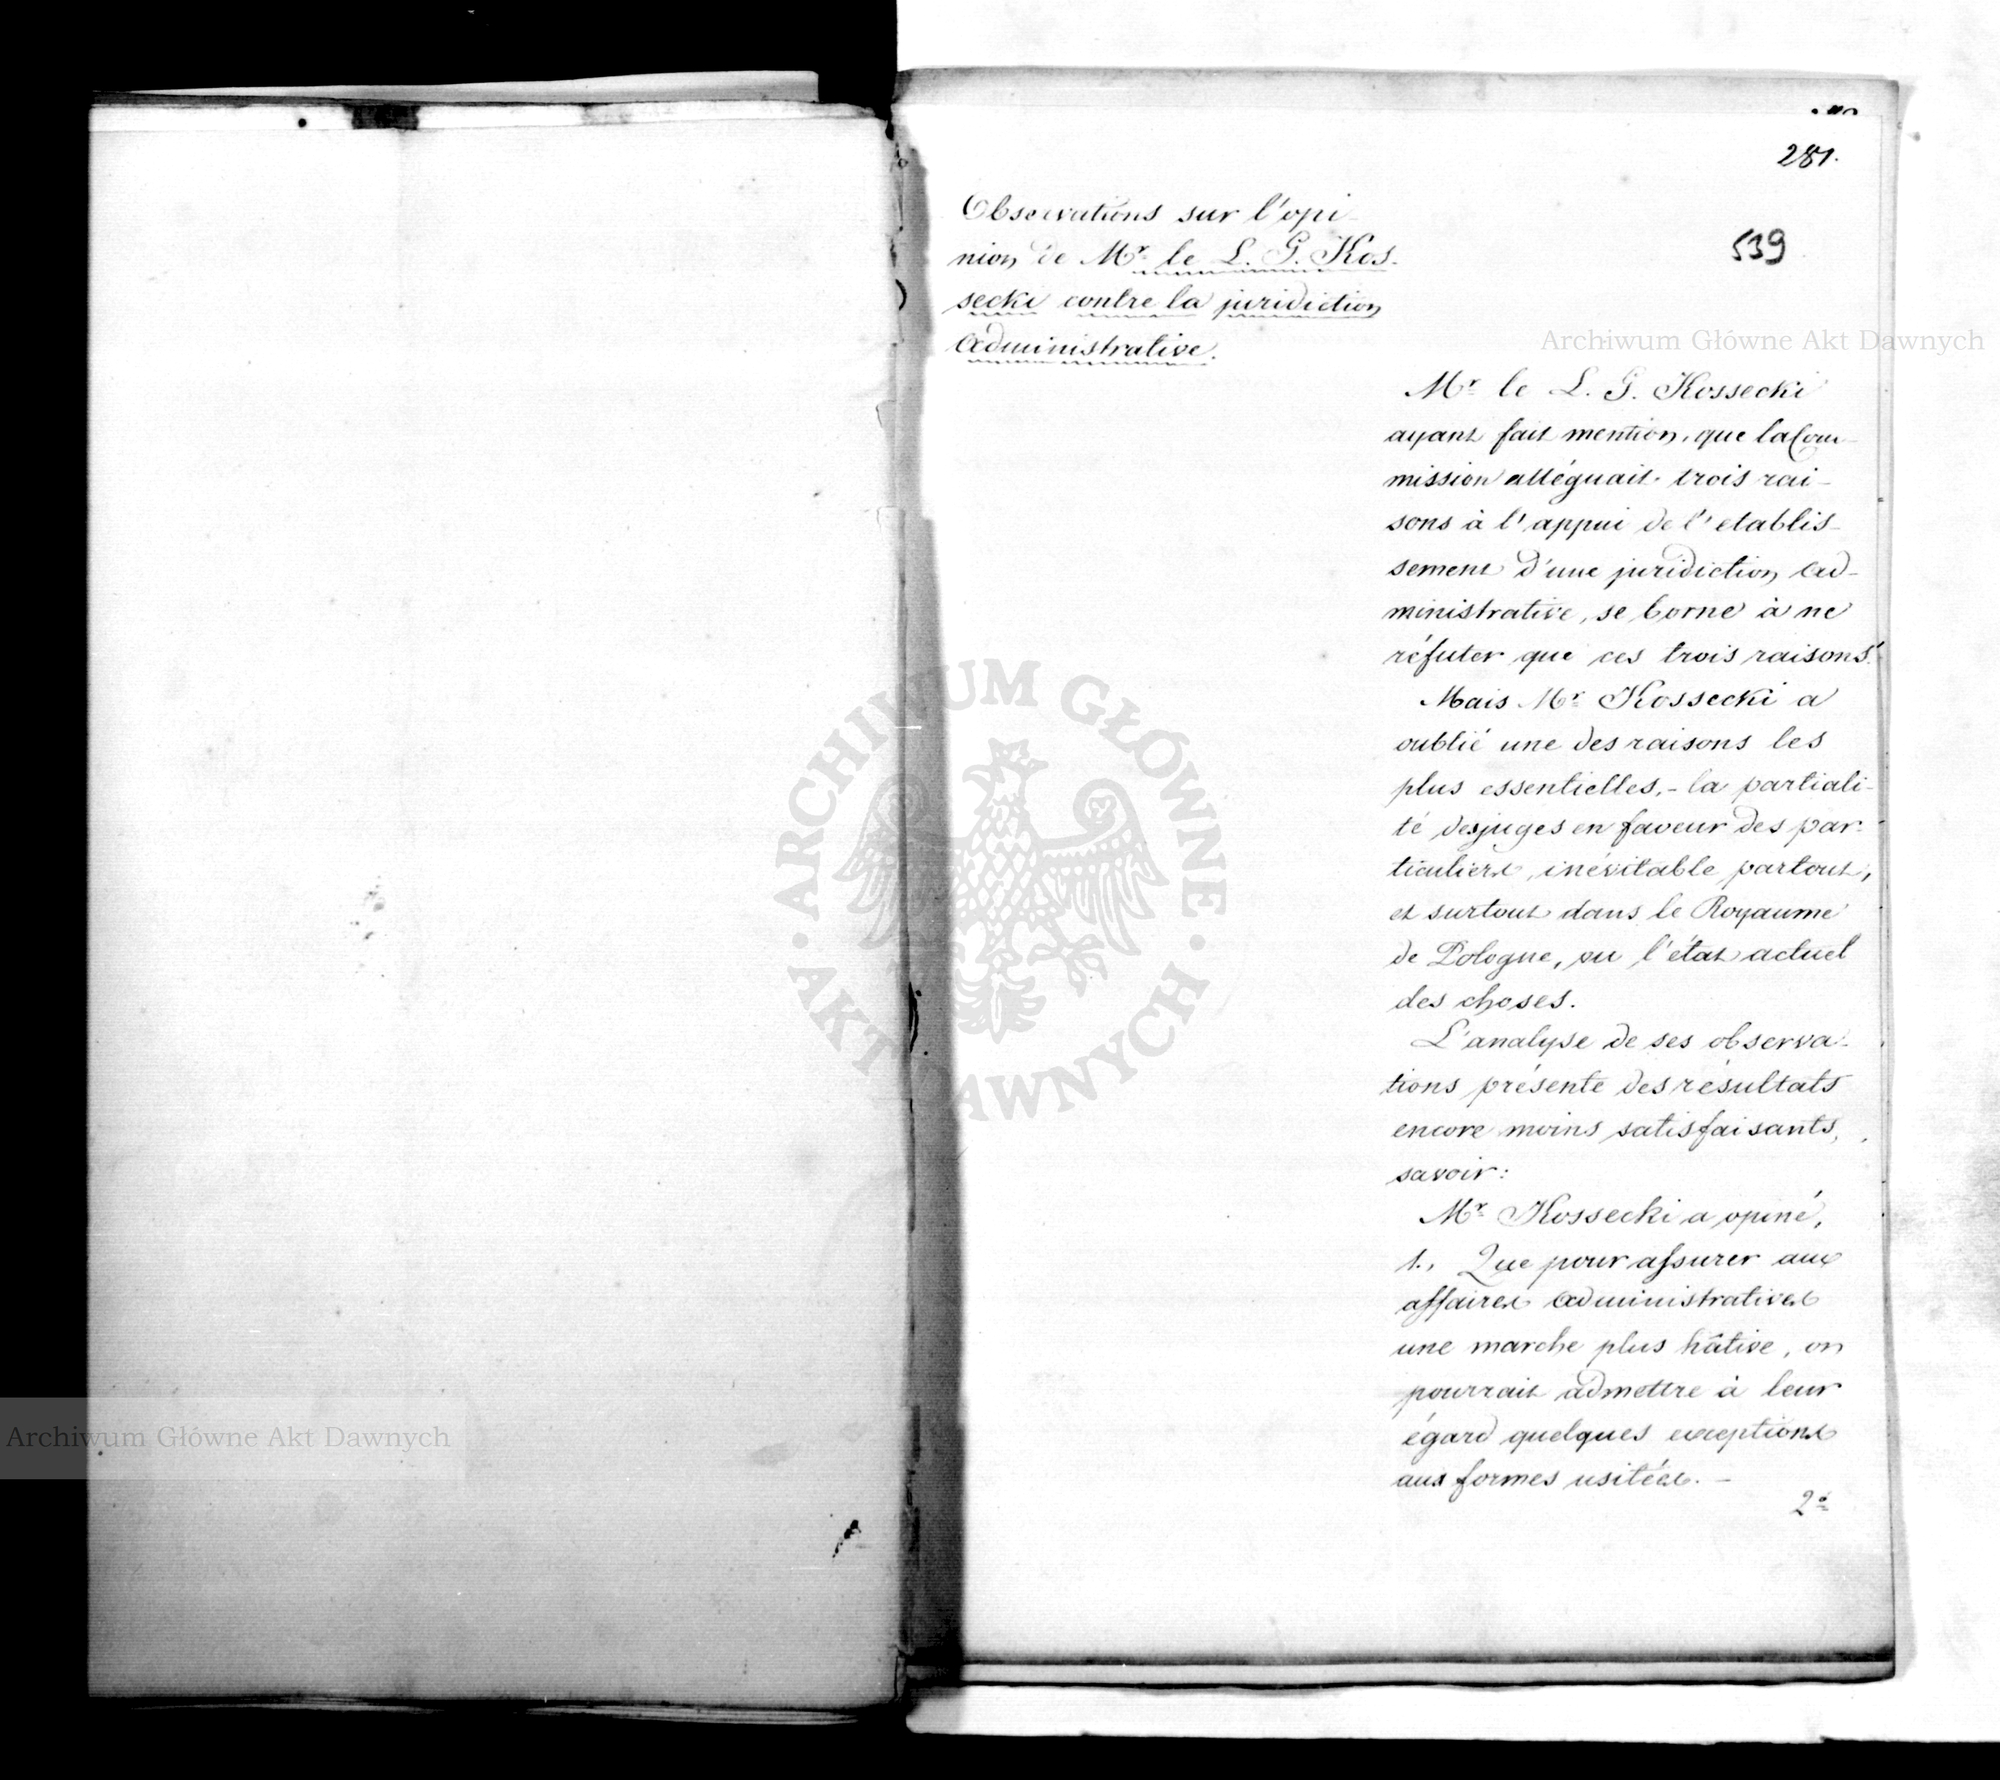 281.
539
Observations sur l'opi-
nion de Mr. le L. G. Kos-
secki contre la juridiction
administrative.
Archiwum Główne Akt Dawnych
Mr. le L. G. Kossecki
ayant fait mention, que la Com-
mission alléguait trois rai-
sons à l'appui de l'etablis-
sement d'une juridiction ad-
ministrative, se borne à ne
réfuter que ces trois raisons.
Mais Mr. Kossecki a
oublié une des raisons les
plus essentielles, - la partiali-
té des juges en faveur des par-
ticuliers, inévitable partout,
et surtout dans le Royaume
de Pologne, vu l'état actuel
des choses.
L'analyse de ses observa-
tions présente des résultats
encore moins satisfaisants,
savoir:
Mr. Kossecki a opiné,
1., Que pour assurer aux
affaires administratives
une marche plus hâtive, on
pourrait admettre à leur
égard quelques exceptions
aux formes usitées. -
2º
ARCHIWUM GŁÓWNE
AKT DAWNYCH
Archiwum Główne Akt Dawnych